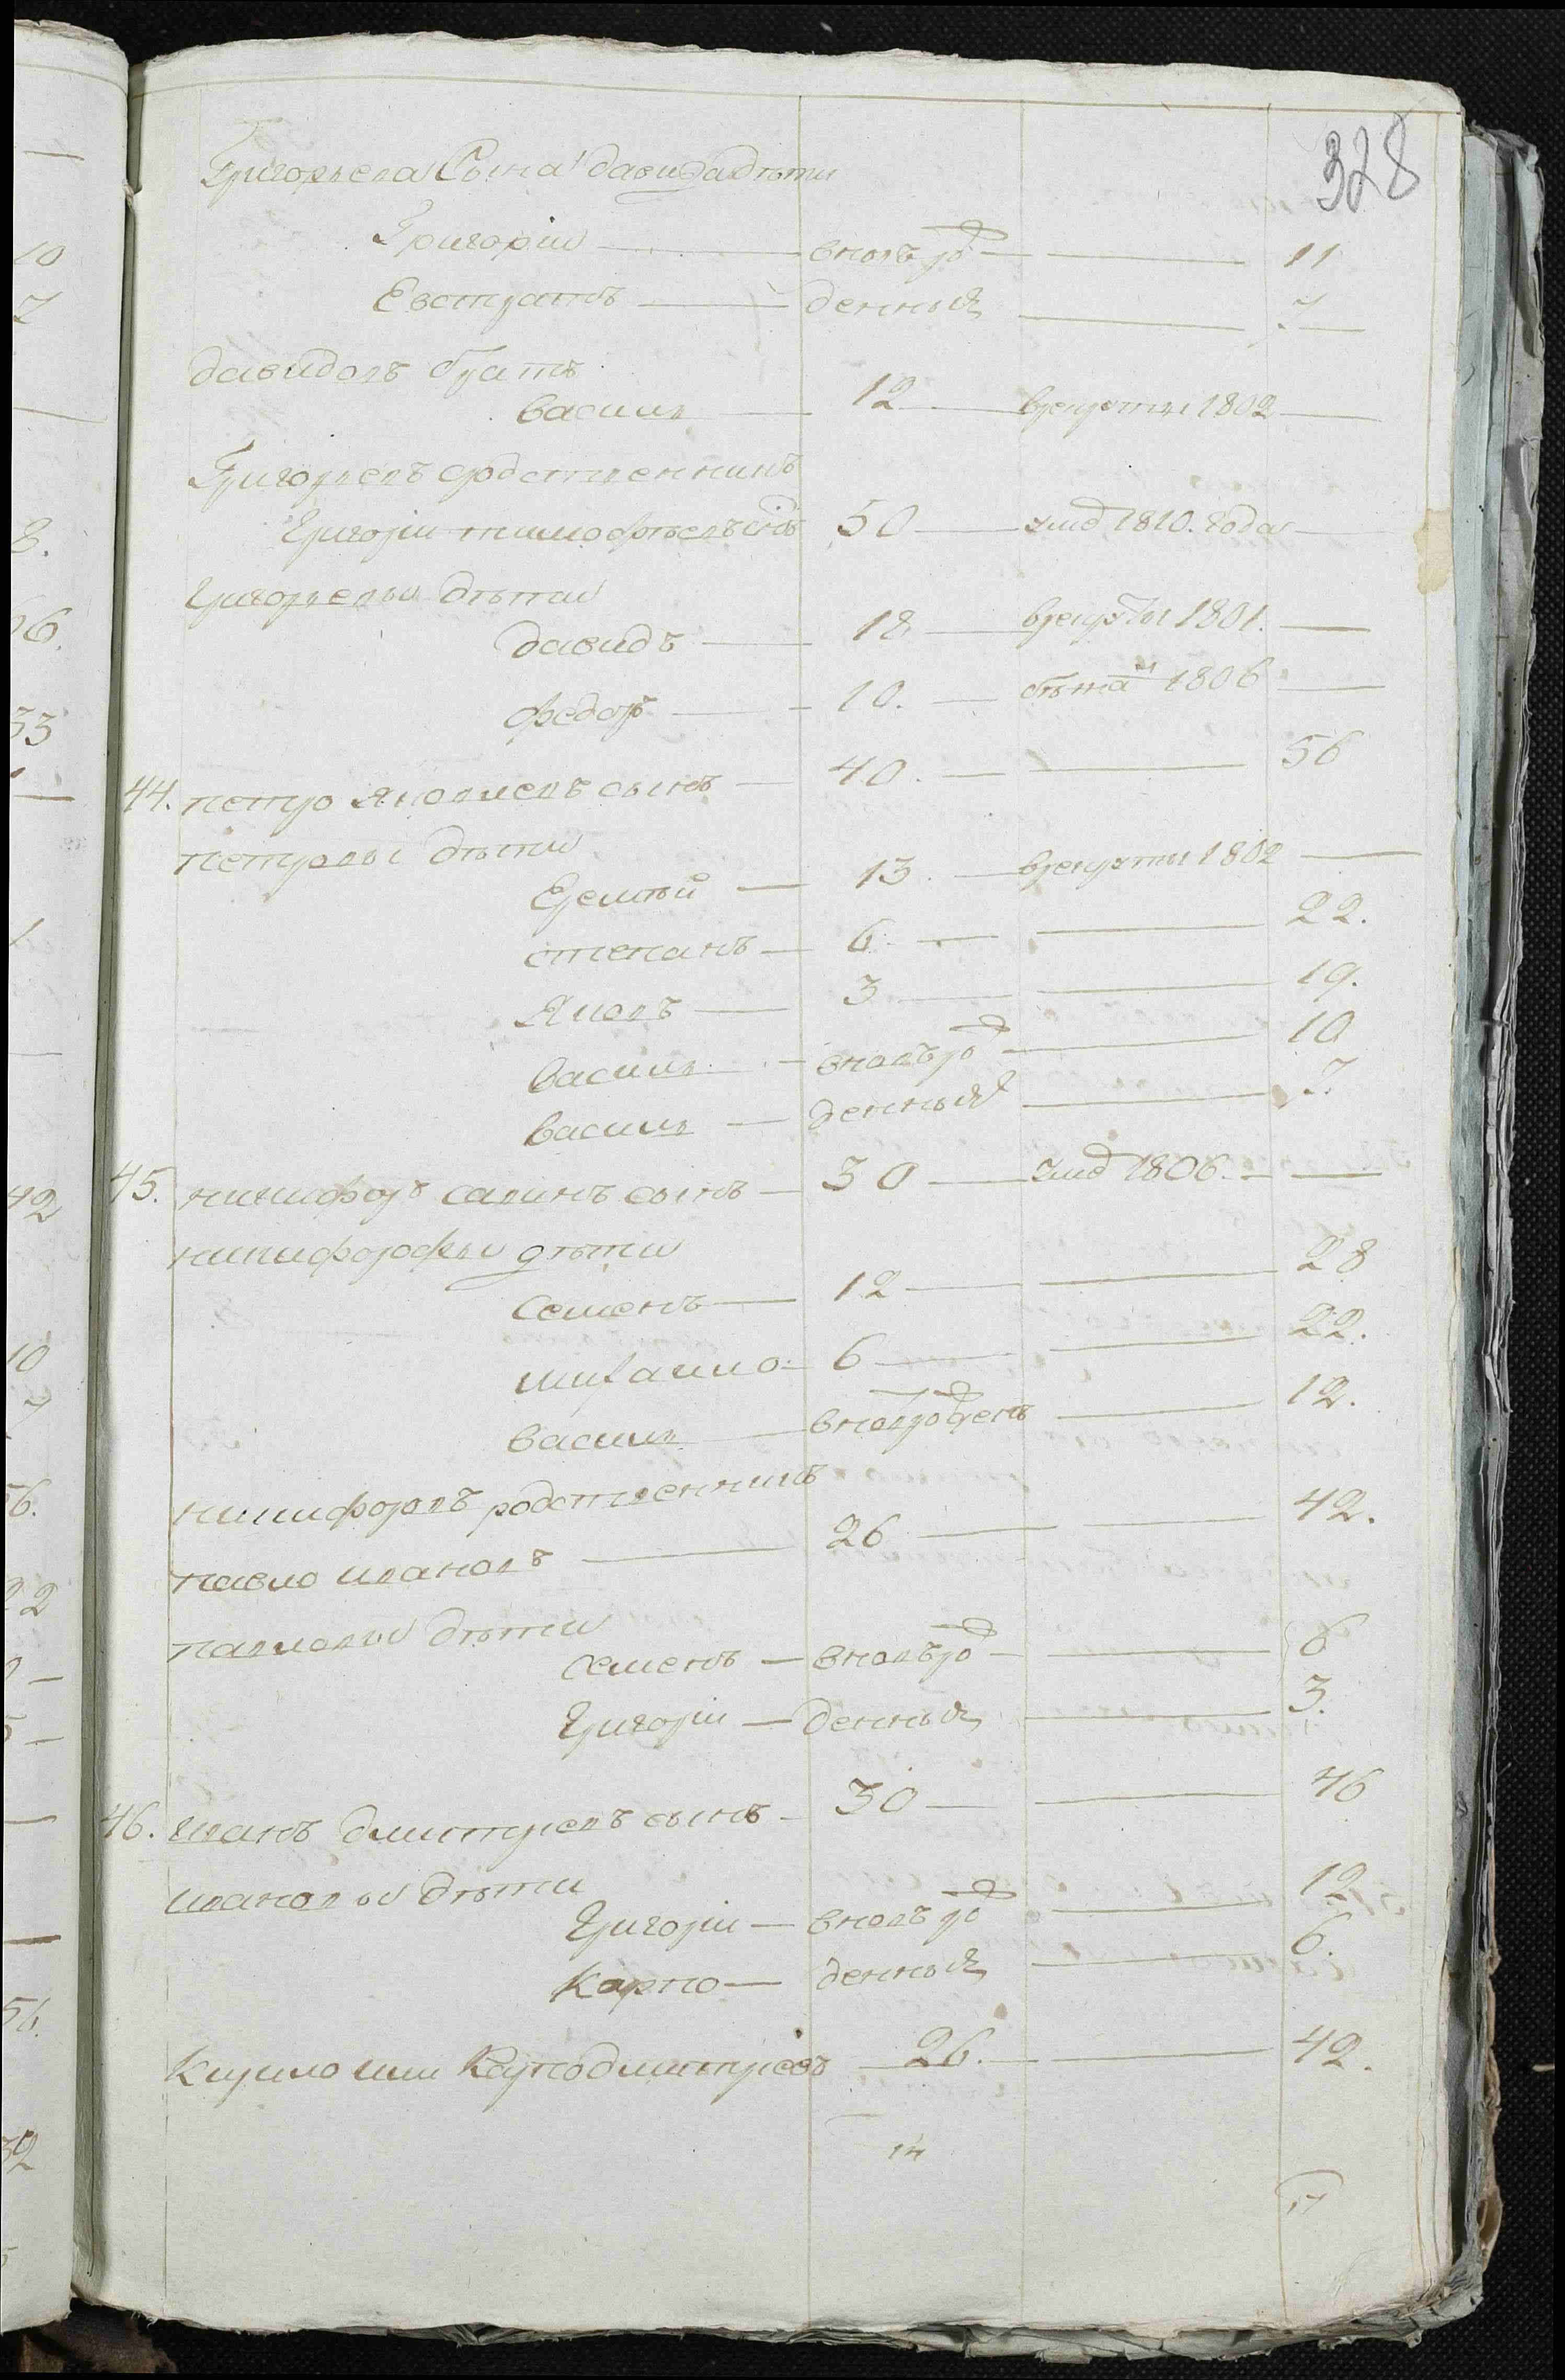 328
Григорьева Сына давида дѣти
Григории — вновь рож — — 11
Евстратъ — денныя — 7
давидовъ братъ
василь — 12 — врекруты 1802 —
Григорьевъ сродственникъ
Григоріи тимофѣевъ снъ 50 — умер 1810. года —
Григорьевы дѣти
давидъ — 18 — врекруты 1801. —
федоръ — 10. — бѣжа 1806 —
44. петро яковлевъ сынъ — 40. — — 56
петровы дѣти
Еремѣй — 13. — врекруты 1802 —
степанъ — 6 — — 22.
Яковъ — 3 — — 19.
василь — вновь рож — — 10
василь — денныя — 7.
45. никифоръ савинъ сынъ — 30 — умер 1806. — —
никифоровы дѣти
Семенъ — 12 — — 28
михаило — 6 — — 22.
василь — вновь рожденъ — 12.
никифоровъ родственникъ
павло ивановъ — 26 — — 42.
павловы дѣти
Семенъ — вновь рож — — 6
Григоріи — денныя — 3.
46. иванъ дмитриевъ сынъ — 30 — — 46
ивановы дѣти
Григоріи — вновь рож — 12
Карпо — денныя — 6.
Кирило или Карпо дмитриевъ — 26. — — 42.
14
17
10
7
8.
33
42
10
7
6.
22
56.
32